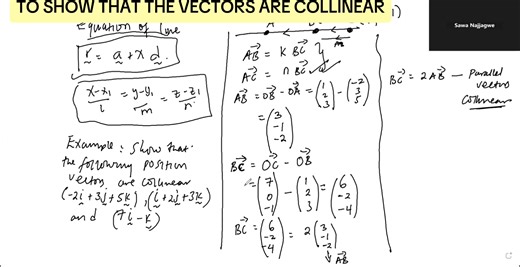 TO SHOW THAT THE VECTORS ARE COLLINEAR
Equation of Line
r = a + x d.
x-x₁ = y-y₁ = z-z₁
m n
Example: Show that
the following position
vectors are collinear
(-2i + 3j + 5k), (i + 2j + 3k)
and (7i - k)
1)
m
AB = K BC
AC = n BC
AB = OB - OA = (1 2 3) - (-2 3 5)
= (3 -1 -2)
BC = OC - OB
= (7 0 -1) - (1 2 3) = (6 -2 -4)
BC = (6 -2 -4) = 2 (3 -1 -2)
AB
Sawa Najjagwe
BC = 2AB — Parallel
vectors
Collinear